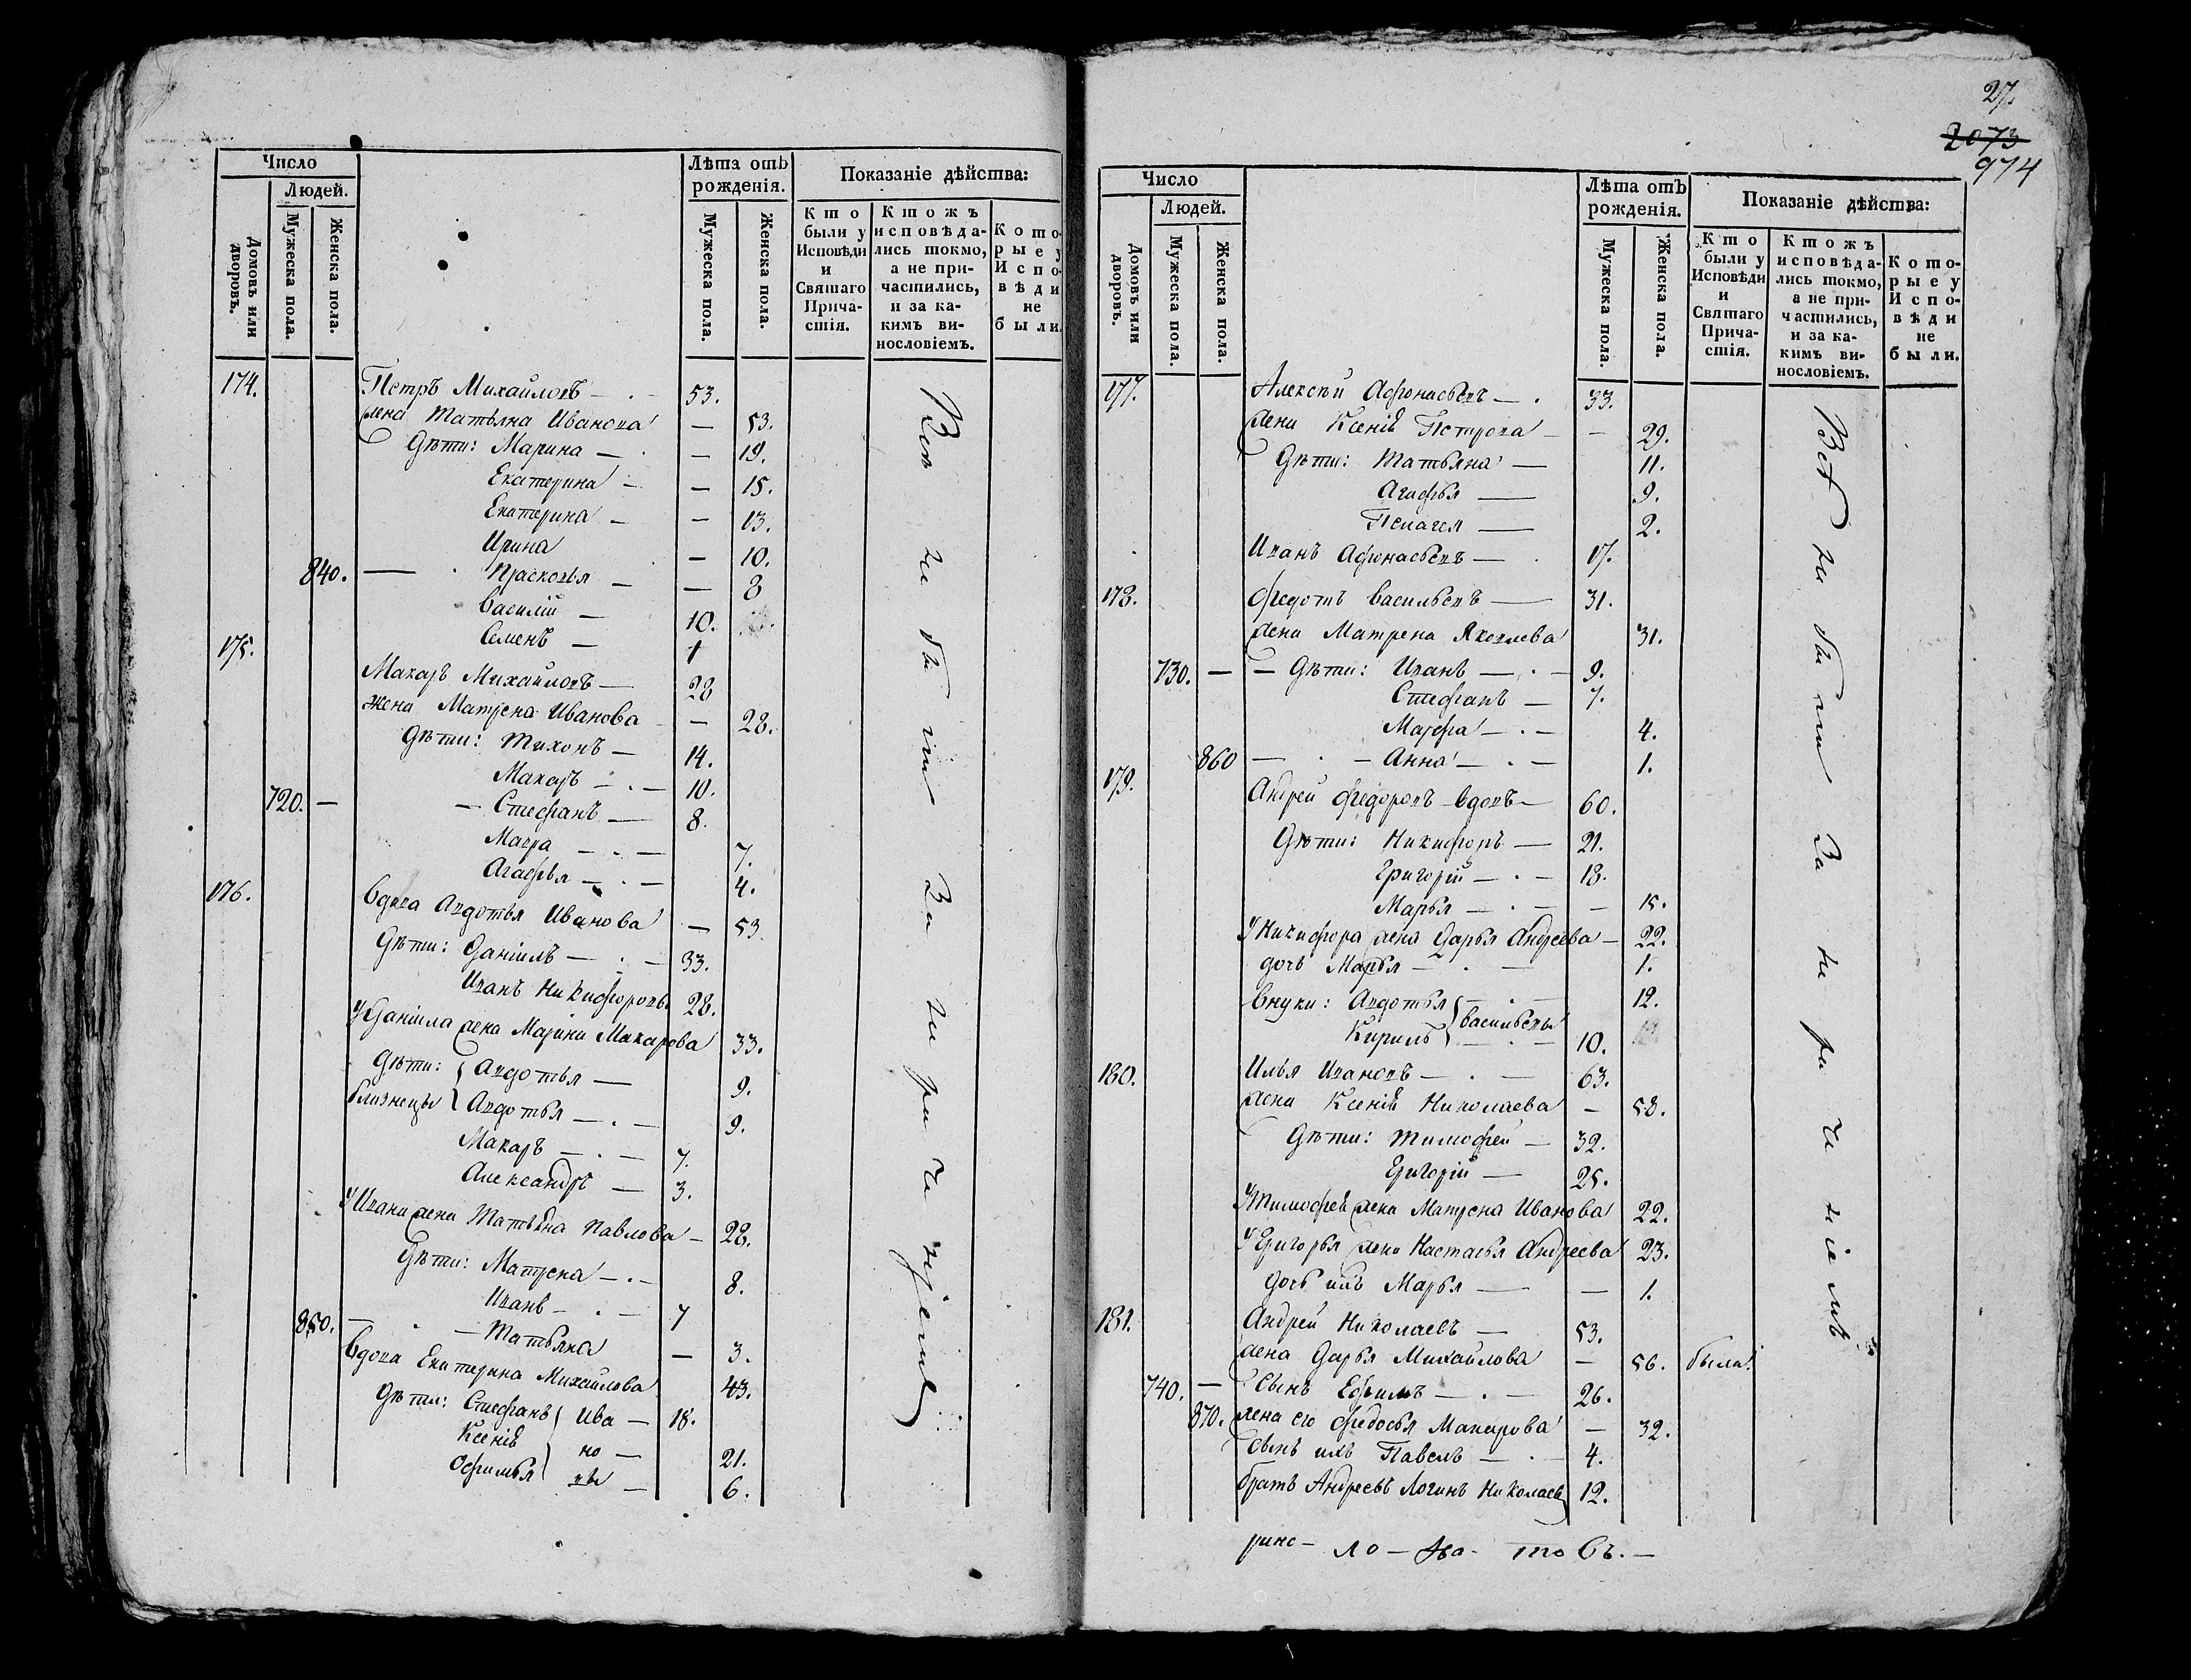 27.
2073
974
Число
Лѣта отъ
рожденія.
Показаніе дѣйства:
Людей.
Домовъ или
дворовъ.
Мужеска пола.
Женска пола.
Мужеска пола.
Женска пола.
Кто
были у
Исповѣди
и
Святаго
Прича-
стія.
Ктожъ
исповѣда-
лись токмо,
а не при-
частились,
и за ка-
кимъ ви-
нословіемъ.
Кото-
рые у
Испо-
вѣди
не
были.
174. Петръ Михайловъ — 53.
жена Татьяна Иванова — 53.
Дѣти: Марина — — 19.
Екатерина — — 15.
Екатерина — — 13.
Ирина — 10.
840. — Прасковья — — 8
Василій — 10.
Семенъ — 1
175. Макаръ Михайловъ — 28
жена Матрена Иванова — 28.
Дѣти: Тихонъ — 14.
Макаръ — 10.
720. — — Стефанъ — 8.
Мавра — 7.
Агафья — 4.
176. Вдова Авдотья Иванова — 53.
Дѣти: Даніилъ — 33.
Иванъ Никифоровы 28.
У Даніила жена Марина Макарова 33.
Дѣти: Авдотья — 9.
близнецы Авдотья — 9.
Макаръ — 7.
Александръ — 3.
У Ивана жена Татьяна Павлова — 28.
Дѣти: Матрена — 8.
Иванъ — 7
850. — — Татьяна — 3.
Вдова Екатерина Михайлова 43.
Дѣти: Стефанъ Ива — 18.
Ксенія но — 21.
Офимья вы — 6.
Всѣ не были за нераченіемъ
Число
Лѣта отъ
рожденія.
Показаніе дѣйства:
Людей.
Домовъ или
дворовъ.
Мужеска пола.
Женска пола.
Мужеска пола.
Женска пола.
Кто
были у
Исповѣди
и
Святаго
Прича-
стія.
Ктожъ
исповѣда-
лись токмо,
а не при-
частились,
и за ка-
кимъ ви-
нословіемъ.
Кото-
рые у
Испо-
вѣди
не
были.
177. Алексѣй Афонасьевъ — 33.
жена Ксенія Петрова — — 29.
Дѣти: Татьяна — 11.
Агафья — 9.
Пелагея — 2.
Иванъ Афонасьевъ — 17.
178. Федотъ Васильевъ — 31.
жена Матрена Яковлева 31.
730. — — Дѣти: Иванъ — 9.
Стефанъ — 7.
Марфа — 4.
860 — — Анна — 1.
179. Андрей Федоровъ вдовъ — 60.
Дѣти: Никифоръ — 21.
Григорій — 18.
Марья — — 15.
У Никифора жена Дарья Андреева — 22.
дочь Марья — 1.
Внуки: Авдотья — 12.
Васильевы
Кирилъ — 10.
180. Илья Ивановъ — 63.
жена Ксенія Николаева — 58.
Дѣти: Тимофей — 32.
Григорій — 25.
У Тимофея жена Матрена Иванова 22.
У Григорья жена Настасья Андреева 23.
дочь ихъ Марья — — 1.
181. Андрей Николаевъ — 53.
жена Дарья Михайлова — 56. была.
740. — Сынъ Ефимъ — 26.
870. жена его Федосья Макарова — 32.
Сынъ ихъ Павелъ — 4.
братъ Андреевъ Логинъ Николаевъ 12.
Всѣ не были за нераченіемъ